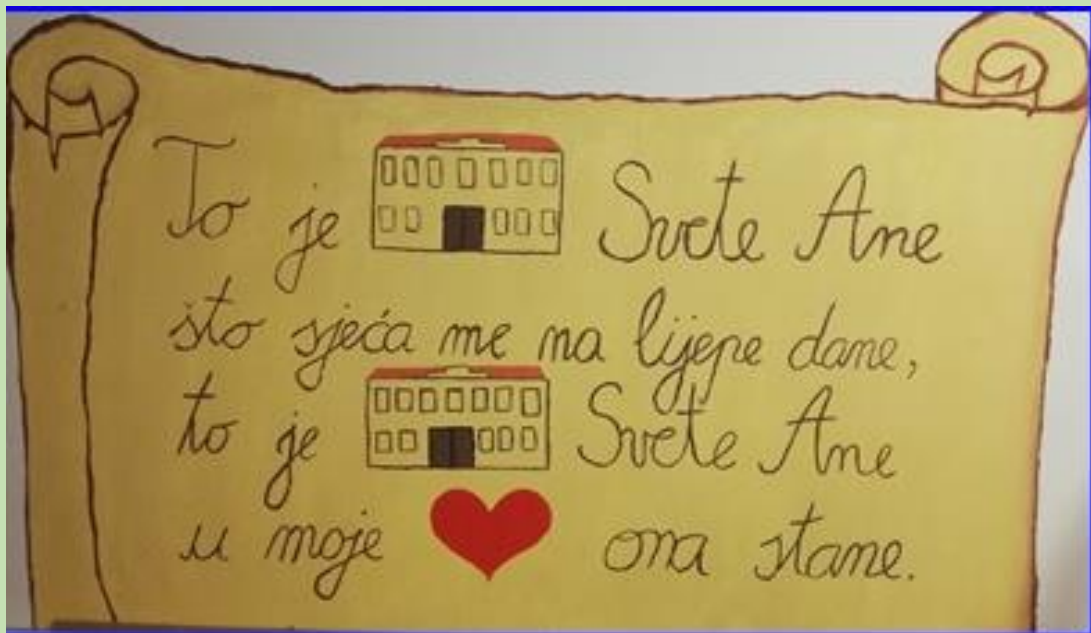 To je Svete Ane
što sjeća me na lijepe dane,
to je Svete Ane
u moje ona stane.